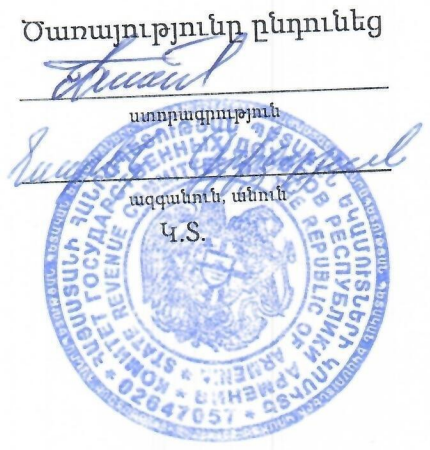 Ծառայությունը ընդունեց
ստորագրություն
ազգանուն, անուն
Կ.Տ.
ՀԱՅԱՍՏԱՆԻ ՀԱՆՐԱՊԵՏՈՒԹՅԱՆ ՊԵՏԱԿԱՆ ԵԿԱՄՈՒՏՆԵՐԻ ԿՈՄԻՏԵ
КОМИТЕТ ГОСУДАРСТВЕННЫХ ДОХОДОВ РЕСПУБЛИКИ АРМЕНИЯ
STATE REVENUE COMMITTEE OF THE REPUBLIC OF ARMENIA
* 02647057 *